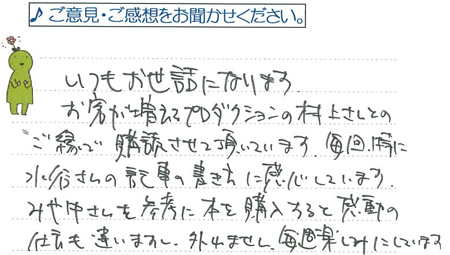 ♪ ご意見・ご感想をお聞かせください。
いつもお世話になります。
お客が増えるプロダクションの村上さんとの
ご縁で購読させて頂いています。毎回、特に
水谷さんの記事の書き方に感心しています。
みやゆさんを参考に本を購入すると感動の
仕方も違いますし、外れません。毎週楽しみにしています